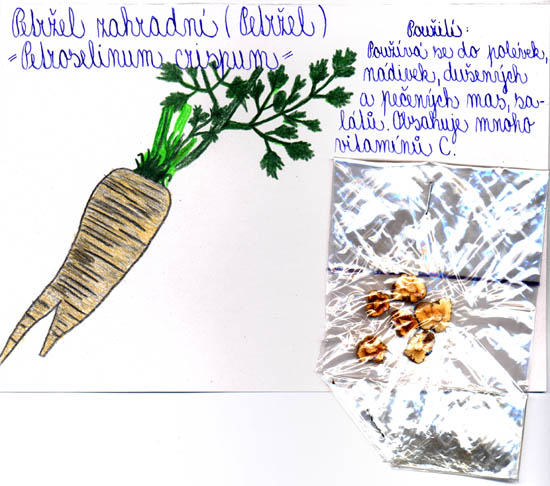 Petržel zahradní (Petržel)
=Petroselinum crispum=
Použití:
Používá se do polévek,
nádivek, dušených
a pečených mas, sa-
látů. Obsahuje mnoho
vitamínů C.